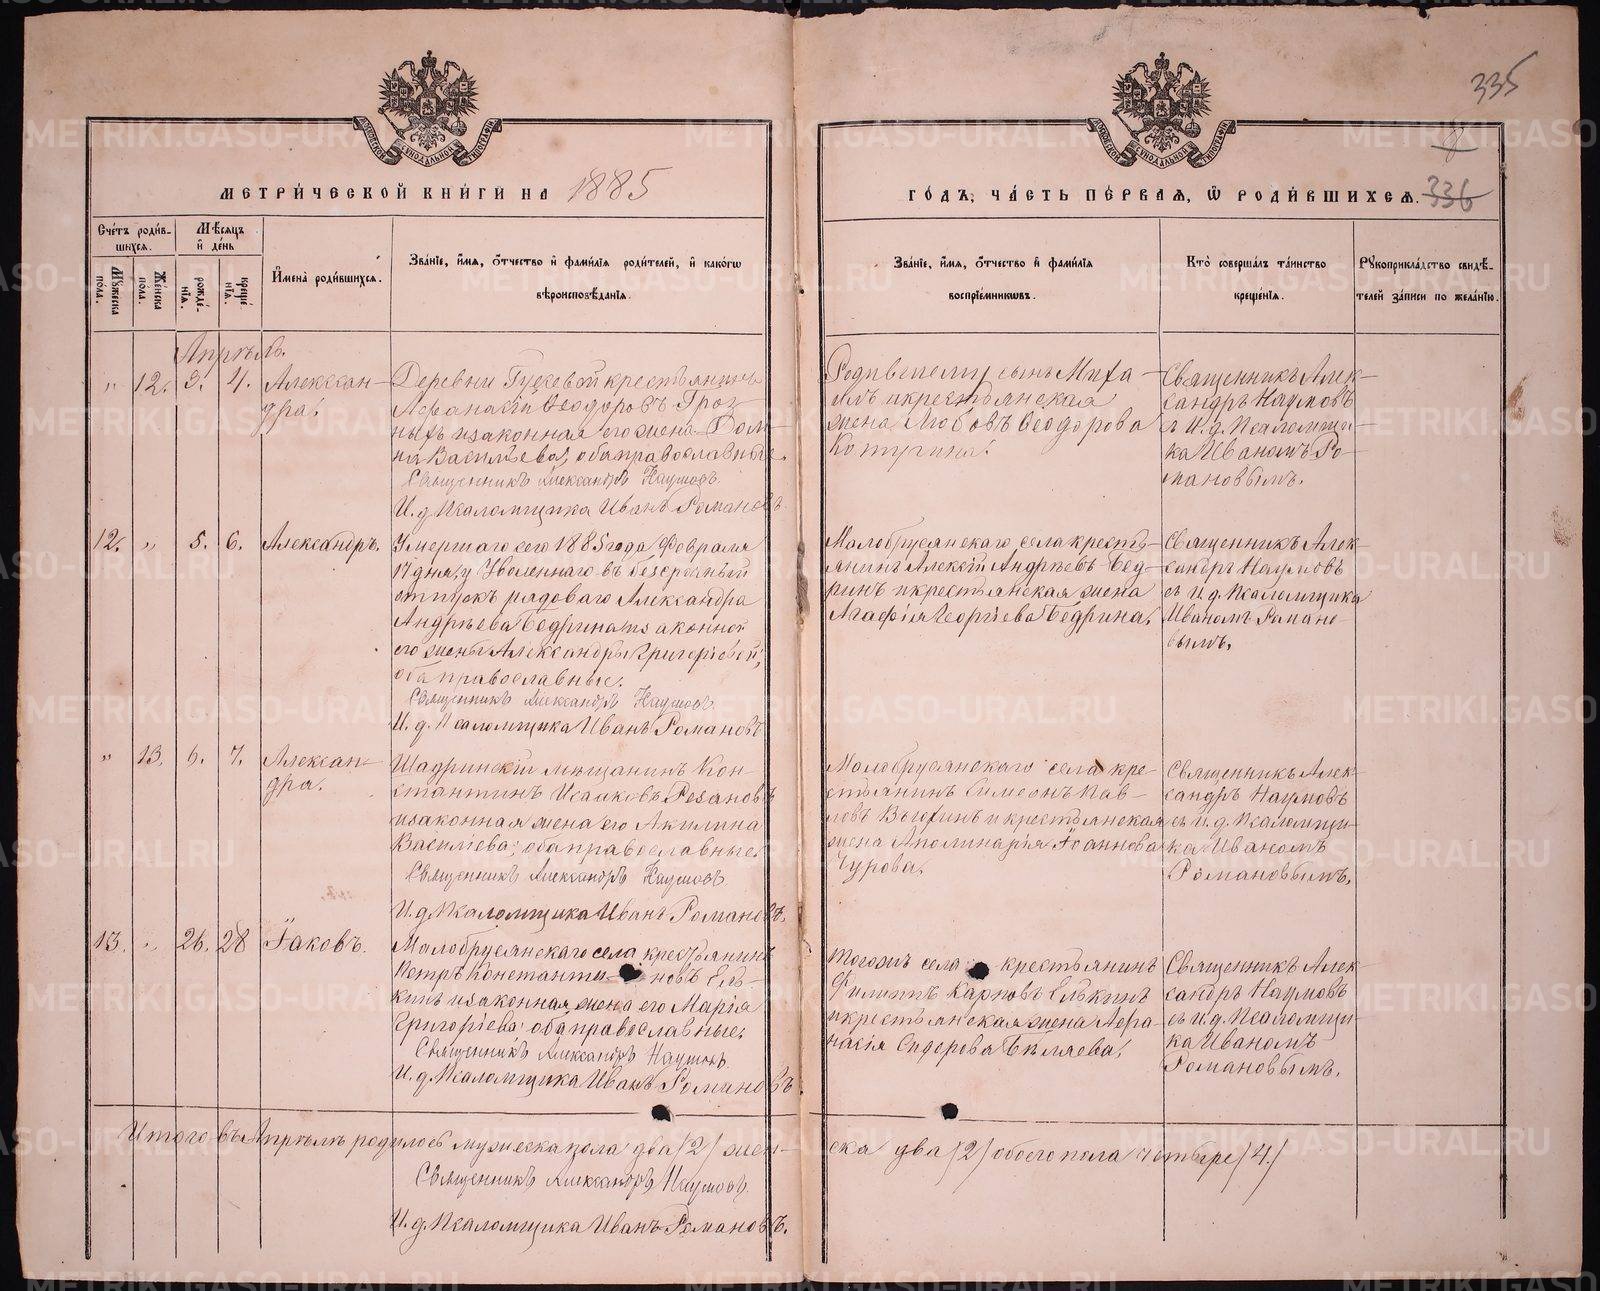 335
МЕТРИ́ЧЕСКОЙ КНИ́ГИ НА 1885
ГО́ДЪ, ЧА́СТЬ ПЕ́РВАЯ, Ѡ РОДИ́ВШИХСЯ. 336
Сче́тъ роди́в-
шихся.
Му́жеска пола.
Же́нска пола.
Мѣсяцъ
и де́нь
рожде́-
нїя.
креще́
нїя.
Имена̀ роди́вшихся.
Зва́нїе, и́мя, о́тчество и фами́лїя роди́телей, и како́гѡ
вѣроисповѣ́данїя.
Зва́нїе, и́мя, о́тчество и фами́лїя
воспрїе́мниковъ.
Кто̀ соверша́лъ та́инство
креще́нїя.
Рꙋкоприкла́дство свидѣ́-
телей за́писи по жела́нїю.
Апрѣль.
„ 12. 3. 4. Алексан-
дра.
Деревни Гусевой крестьянинъ
Афанасій Ѳеодоровъ Гроз
ныхъ и законная его жена Дом-
на Васильева, оба православные.
Священникъ Александръ Наумовъ.
И. д. Псаломщика Иванъ Романовъ
Родившей сынъ Миха-
илъ и крестьянская
жена Любовь Ѳеодорова
Священникъ Алек-
сандръ Наумовъ
съ И. д. Псаломщи-
ка Иваномъ Ро-
мановымъ.
12. „ 5. 6. Александръ.
Умершаго сего 1885 года Февраля
17 дня, уволеннаго въ безсрочный
отпускъ рядоваго Александра
Андрѣева Бедрина и законной
его жены Александры Григорьевой,
оба православные.
Священникъ Александръ Наумовъ
И. д. Псаломщика Иванъ Романовъ
Малобрусянскаго села кресть-
янинъ Алексій Андрѣевъ Бед-
ринъ и крестьянская жена
Агафія Георгіева Бедрина.
Священникъ Алек-
сандръ Наумовъ
съ И. д. Псаломщика
Иваномъ Романо-
вымъ.
„ 13. 6. 7. Алексан-
дра.
Шадринскій мѣщанинъ Кон-
стантинъ Исааковъ Резановъ
и законная жена его Акилина
Васильева, оба православные.
Священникъ Александръ Наумовъ
И. д. Псаломщика Иванъ Романовъ.
Малобрусянскаго села кре-
стьянинъ Симеонъ Пав-
ловъ и крестьянская
жена Аполинарія Іоаннова
Чурова.
Священникъ Алек-
сандръ Наумовъ
съ И. д. Псаломщи-
ка Иваномъ
Романовымъ.
13. „ 26. 28 Іаковъ.
Малобрусянскаго села крестьянинъ
Петръ Константиновъ Ель-
кинъ и законная жена его Марія
Григорьева, оба православные.
Священникъ Александръ Наумовъ
И. д. Псаломщика Иванъ Романовъ
Тогожъ села крестьянинъ
Филиппъ Карповъ Елькинъ
и крестьянская жена Афа-
насія Сидорова Бѣляева.
Священникъ Алек-
сандръ Наумовъ
съ И. д. Псаломщи-
ка Иваномъ
Романовымъ.
Итого въ Апрѣлѣ родилось мужеска пола два /2/ жен-
ска два /2/ обоего пола четыре /4./
Священникъ Александръ Наумовъ.
И. д. Псаломщика Иванъ Романовъ.
METRIKI.GASO-URAL.RU